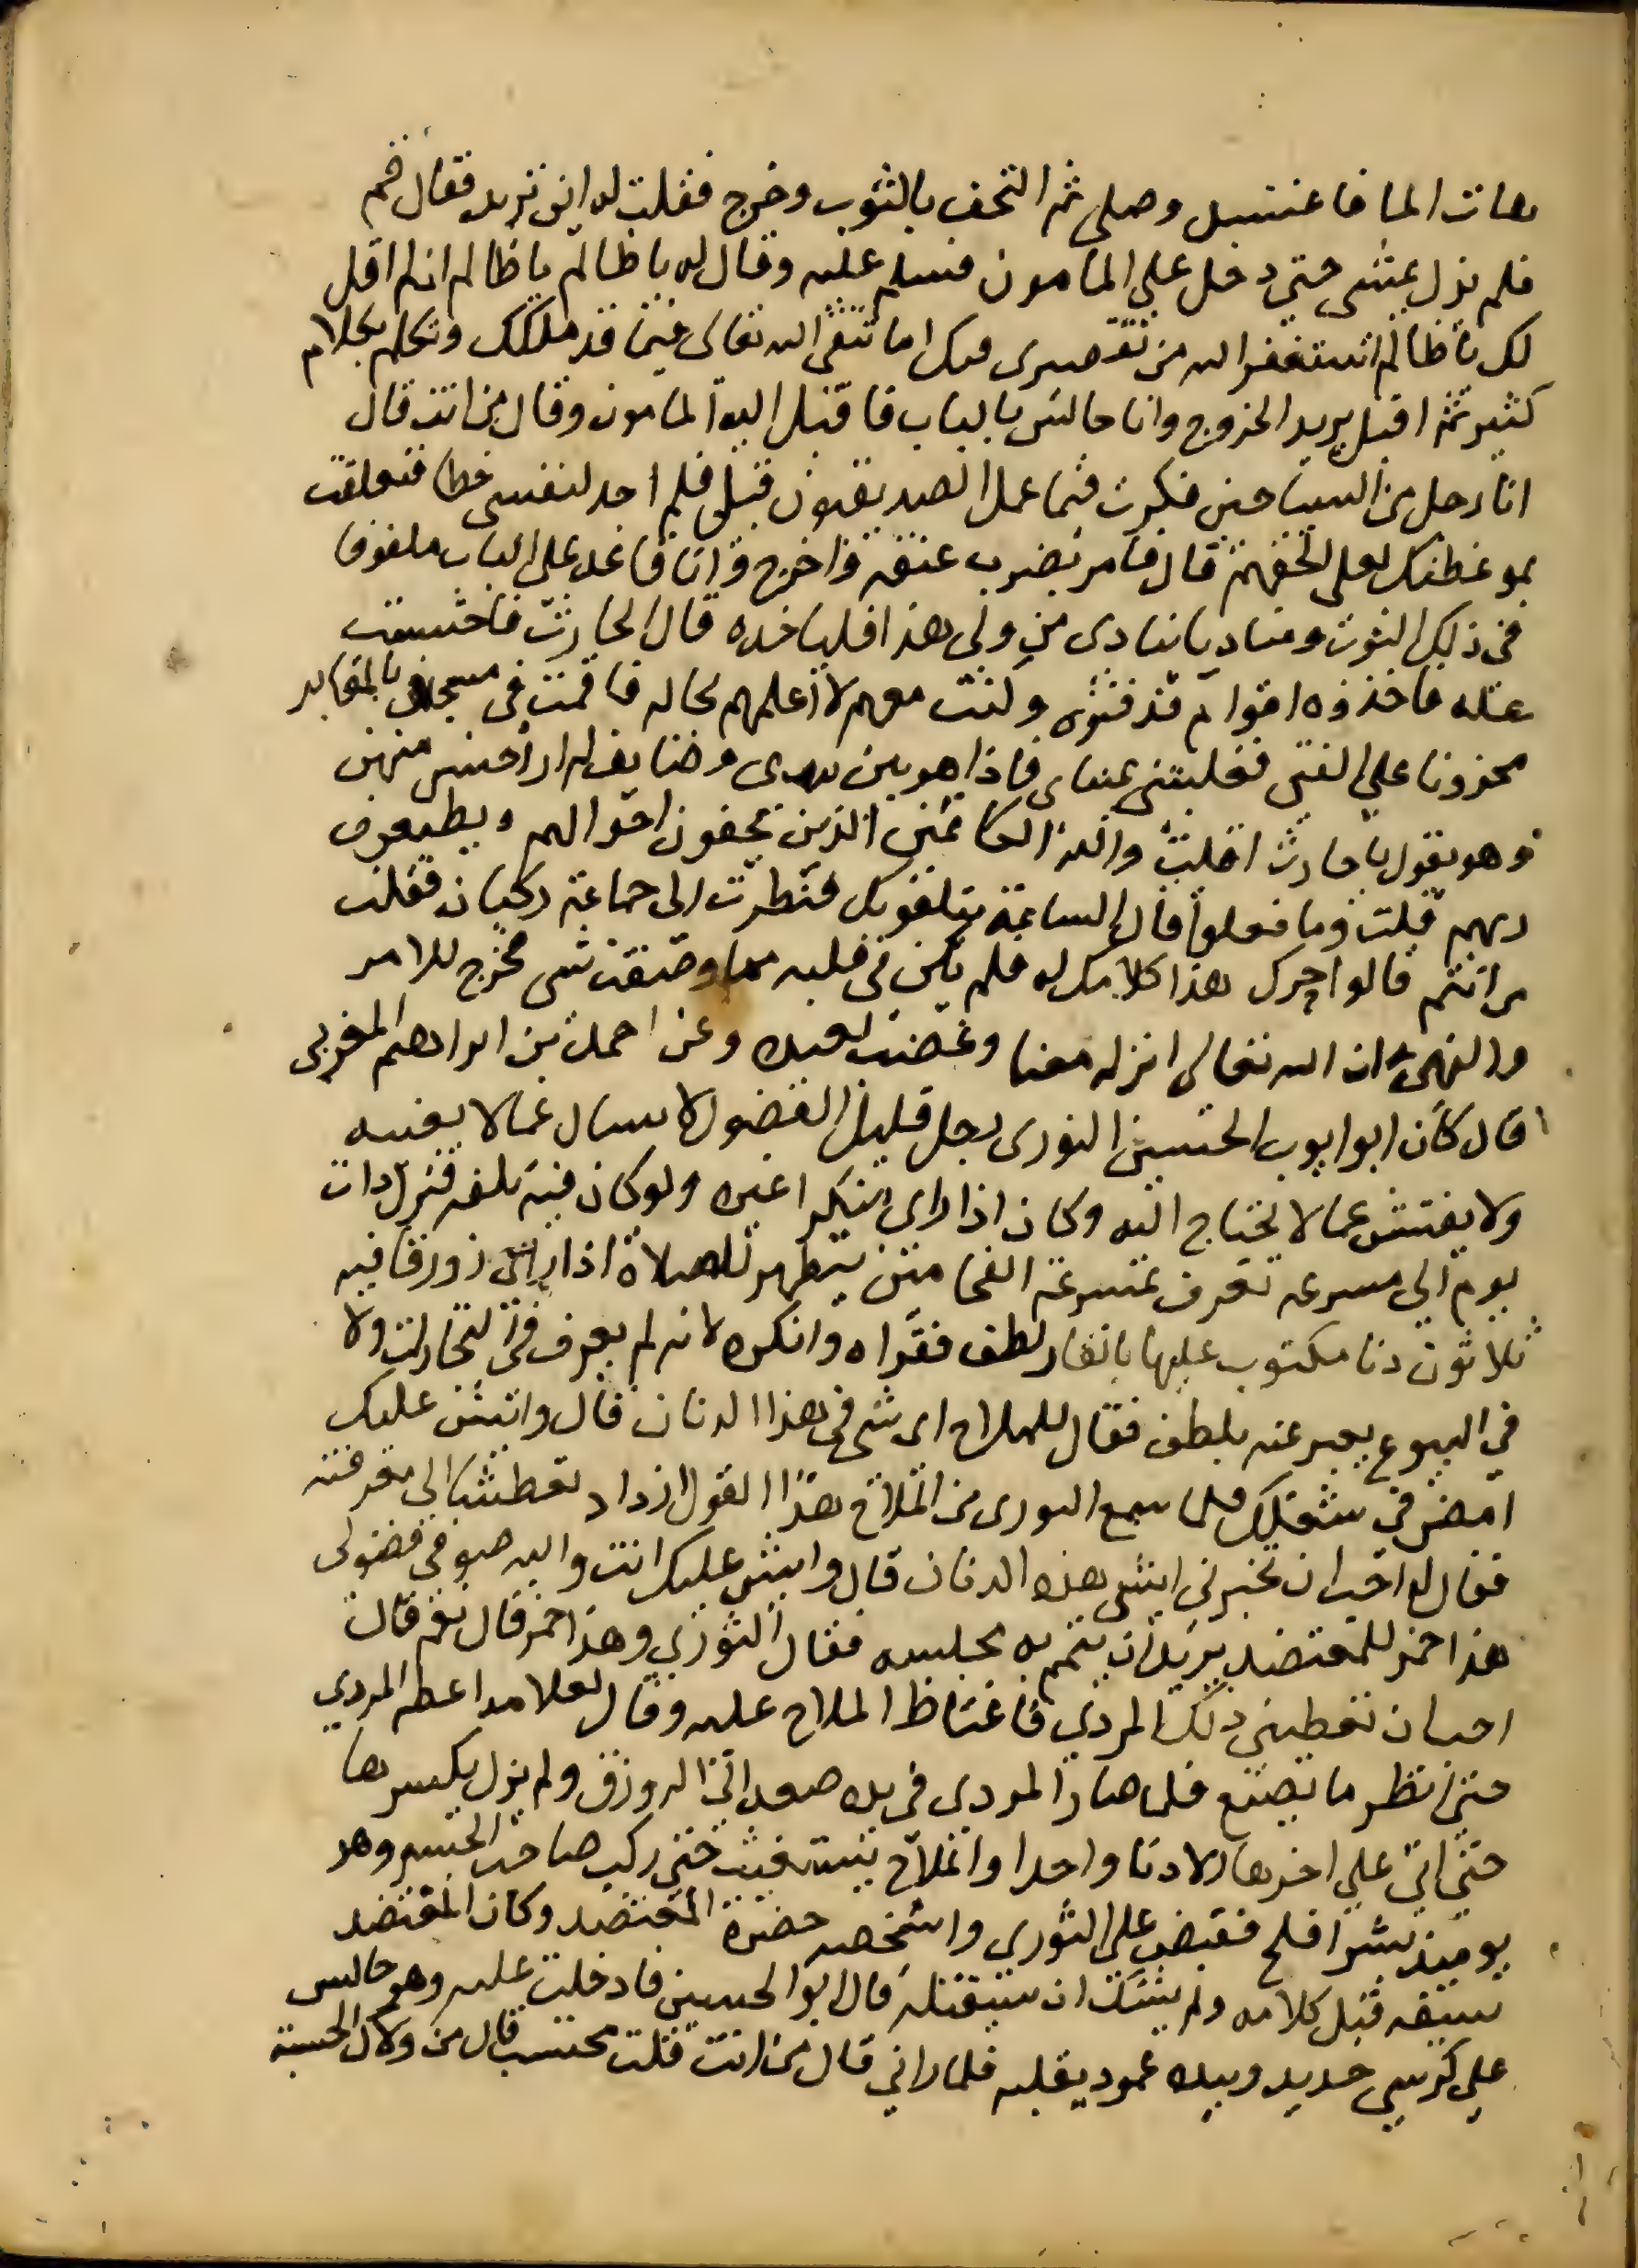 هات الما فاغتسل وصلى ثم التحف بالثوب وخرج فقلت له اين تريد فقال قم
فلم نزل نمشى حتى دخل على المامون فسلم عليه وقال له يا ظالم يا ظالم ان لم اقل
لك يا ظالم استغفر الله من تقصيرى فيك اما تتقى الله تعالى فيما قد ملكك وتكلم بكلام
كثير ثم اقبل يريد الخروج وانا جالس بالباب فاقبل اليه المامون وقال من انت قال
انا رجل من السياحين فكرت فيما عمل الصديقون قبلى فلم اجد لنفسى حظا فتعلقت
بموعظتك لعلى الحقهم قال فامر بضرب عنقه فاخرج وانا قاعد على الباب ملفوفا
فى ذلك الثوب ومناديا ينادى من ولى هذا فلياخذه قال الحارث فاختبيت
عنه فاخذوه اقوام فدفنوه وكنت معهم لا اعلمهم بحاله فاقمت فى مسجد فى بالمقابر
محزونا على الفتى فغلبتنى عيناى فاذا هو بين وصايف لم ار احسن منهن
وهو يقول يا حارث انت والله الكاتمين الذين يخفون احوالهم ويطيعون
ربهم قلت وما فعلوا قال الساعة يتلقونك فنظرت الى جماعة ركبان فقلت
من انتم قالوا حرك هذا كلامك له فلم يكن فى قلبه مما وصفت شى فخرج للامر
والنهى وان الله تعالى انزله معنا وغضب لعبده وعن احمد بن ابراهيم المغربى
قال كان ابو ايوب الحسين النورى رجل قليل الفضول لا يسال عما لا يعنيه
ولا يفتش عما لا يحتاج اليه وكان اذا راى منكرا غيره ولو كان فيه تلفه فنزل ذات
يوم الى مسرعه تعرف بمسرعة الفحامين يتطهر للصلاة اذ راى زورقا فيه
ثلاثون دنا مكتوب عليها بالقار لطف فقراه وانكره لانه لم يعرف فى التجارات ولا
في البيوع يعبر عنه بلطف فقال للملاح اى شى فى هذا الدنان قال وايش عليك
امض في شغلك فلما سمع النورى من الملاح هذا القول ازداد تعطشا الى معرفته
فقال له احب ان تخبرنى ايش هذه الدنان قال وايش عليك انت والله صوفى فضولى
هذا خمر للمعتضد يريد ان يتمم به مجلسه فقال النوري وهذا خمر قال نعم قال
احب ان تعطينى ذلك المردي فاغتاظ الملاح عليه وقال لغلامه اعطه المردي
حتى انظر ما يصنع فلما صار المردي فى يده صعد الى الزورق ولم يزل يكسرها
حتى اتى على اخرها الا دنا واحدا والملاح يستغيث حتى ركب صاحب الجسر وهو
يوميذ بشر افلح فقبض على النوري واشخصه حضرة المعتضد وكان المعتضد
سيفه قبل كلامه ولم يشك ان سيقتله قال ابو الحسين فادخلت عليه وهو جالس
على كرسي حديد وبيده عمود يقلبه فلما راني قال من انت قلت محتسب قال من ولاك الحسبة